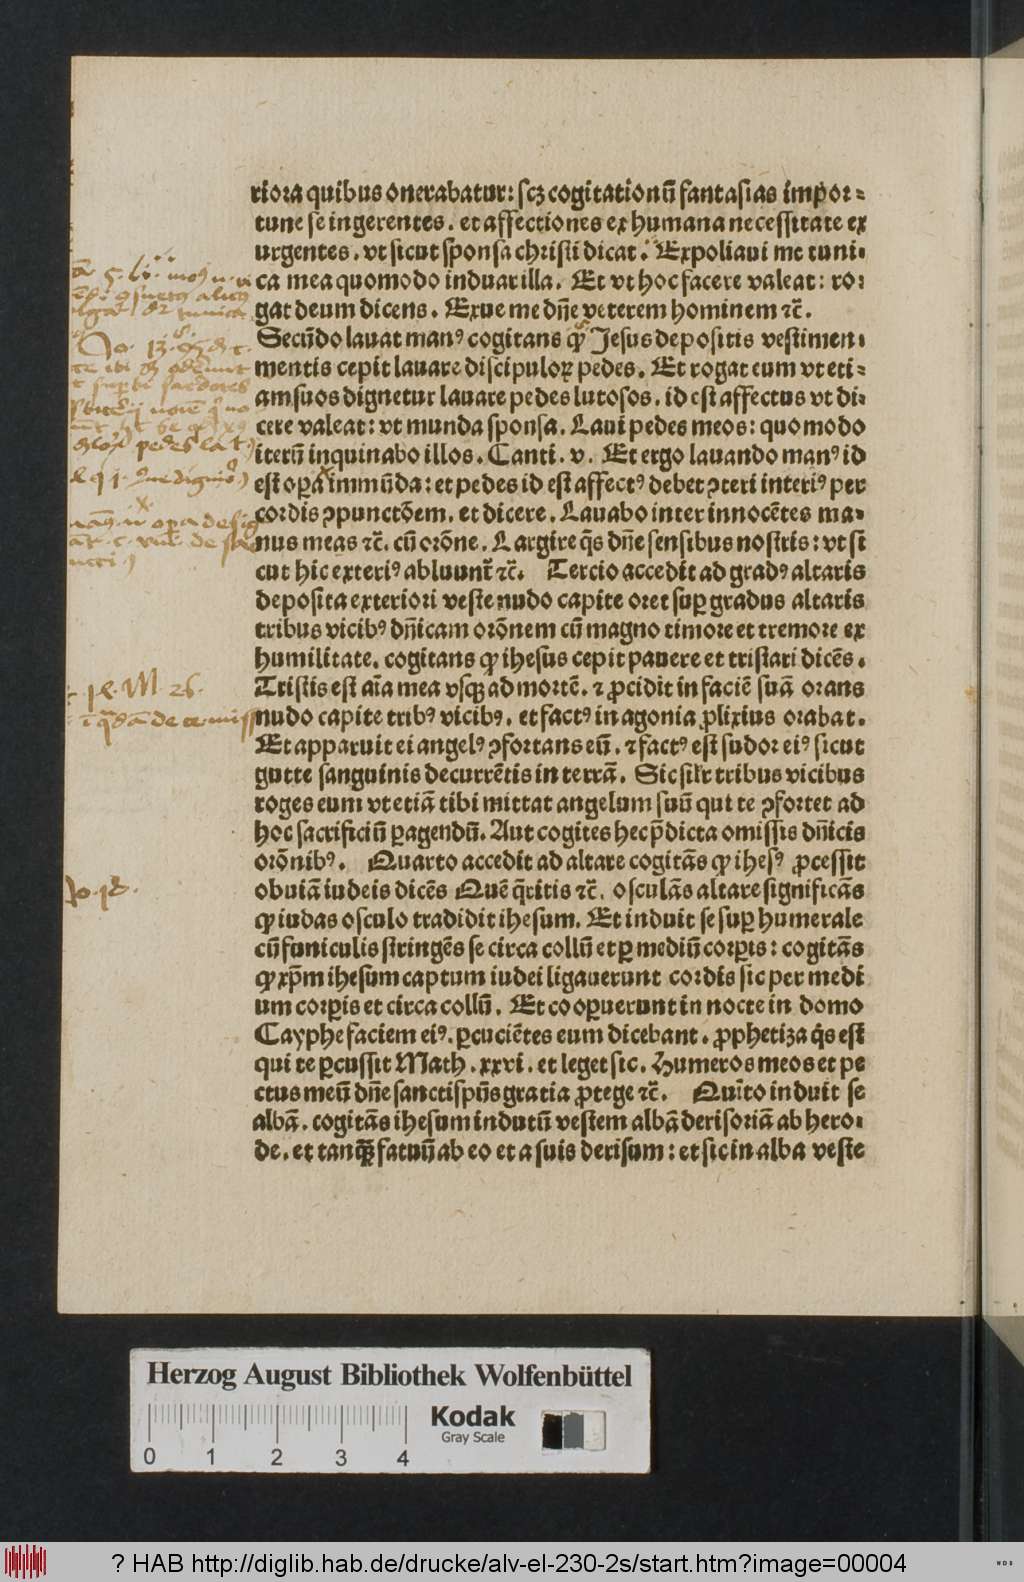 riora quibus onerabatur: scꝫ cogitationū fantasias impor⸗
tune se ingerentes. et affectiones ex humana necessitate ex
urgentes. vt sicut sponsa christi dicat: Expoliaui me tuni⸗
ca mea quomodo induar illa. Et vt hoc facere valeat: ro⸗
gat deum dicens. Exue me dn̄e veterem hominem ⁊c̄.
Secūdo lauat manꝰ cogitans ꝙ Jesus depositis vestimen⸗
mentis cepit lauare discipuloꝝ pedes. Et rogat eum vt eti⸗
am suos dignetur lauare pedes lutosos. id est affectus vt di⸗
cere valeat: vt munda sponsa. Laui pedes meos: quomodo
iterū inquinabo illos. Canti. v. Et ergo lauando manꝰ id
est oꝑa immūda: et pedes id est affectꝰ debet ꝯteri interiꝰ per
cordis ꝯpunctōem. et dicere. Lauabo inter innocētes ma⸗
nus meas ⁊c̄. cū orōne. Largire q̄s dn̄e sensibus nostris: vt si
cut hic exteriꝰ abluunt̄ ⁊c̄. Tercio accedit ad gradꝰ altaris
deposita exteriori veste nudo capite oret suꝑ gradus altaris
tribus vicibꝰ dn̄icam orōnem cū magno timore et tremore ex
humilitate. cogitans ꝙ ihesus cepit pauere et tristari dicēs.
Tristis est aīa mea vsqꝫ ad mortē. ⁊ ꝓcidit in faciē suā orans
nudo capite tribꝰ vicibꝰ. et factꝰ in agonia ꝓlixius orabat.
Et apparuit ei angelꝰ ꝯfortans eū. ⁊ factꝰ est sudor eiꝰ sicut
gutte sanguinis decurrētis in terrā. Sic sil̄r tribus vicibus
roges eum vt etiā tibi mittat angelum suū qui te ꝯfortet ad
hoc sacrificiū ꝑagendū. Aut cogites hec p̄dicta omissis dn̄icis
orōnibꝰ. Quarto accedit ad altare cogitās ꝙ ihesꝰ ꝓcessit
obuiā iudeis dicēs Quē q̄ritis ⁊c̄. osculās altare significās
ꝙ iudas osculo tradidit ihesum. Et induit se suꝑ humerale
cū funiculis stringēs se circa collū et ꝑ mediū corꝑis: cogitās
ꝙ xp̄m ihesum captum iudei ligauerunt cordis sic per medi
um corꝑis et circa collū. Et cooꝑuerunt in nocte in domo
Cayphe faciem eiꝰ. ꝑcuciētes eum dicebant. ꝓphetiza q̇s est
qui te ꝑcussit Math. xxvi. et leget sic. Humeros meos et pe
ctus meū dn̄e sancti sp̄us gratia ꝓtege ⁊c̄. Quīto induit se
albā. cogitās ihesum indutū vestem albā derisoriā ab hero⸗
de. et tanqꝫ̄ fatuū ab eo et a suis derisum: et sic in alba veste
Herzog August Bibliothek Wolfenbüttel
0 1 2 3 4
Kodak
Gray Scale
? HAB http://diglib.hab.de/drucke/alv-el-230-2s/start.htm?image=00004